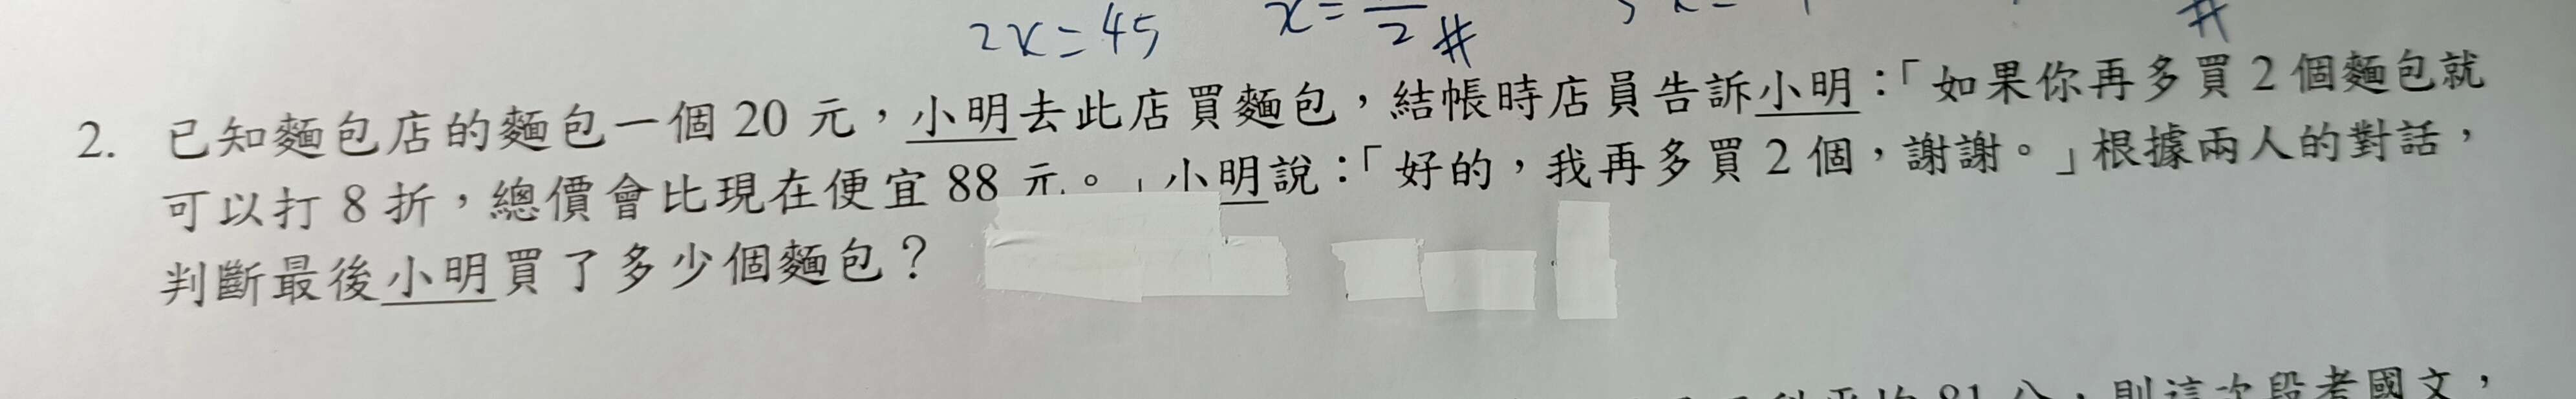 2x=45 x= 2 #
2. 已知麵包店的麵包一個 20 元，小明去此店買麵包，結帳時店員告訴小明：「如果你再多買 2 個麵包就
可以打 8 折，總價會比現在便宜 88 元。」小明說：「好的，我再多買 2 個，謝謝。」根據兩人的對話，
判斷最後小明買了多少個麵包？
81 分，則這次段考國文，